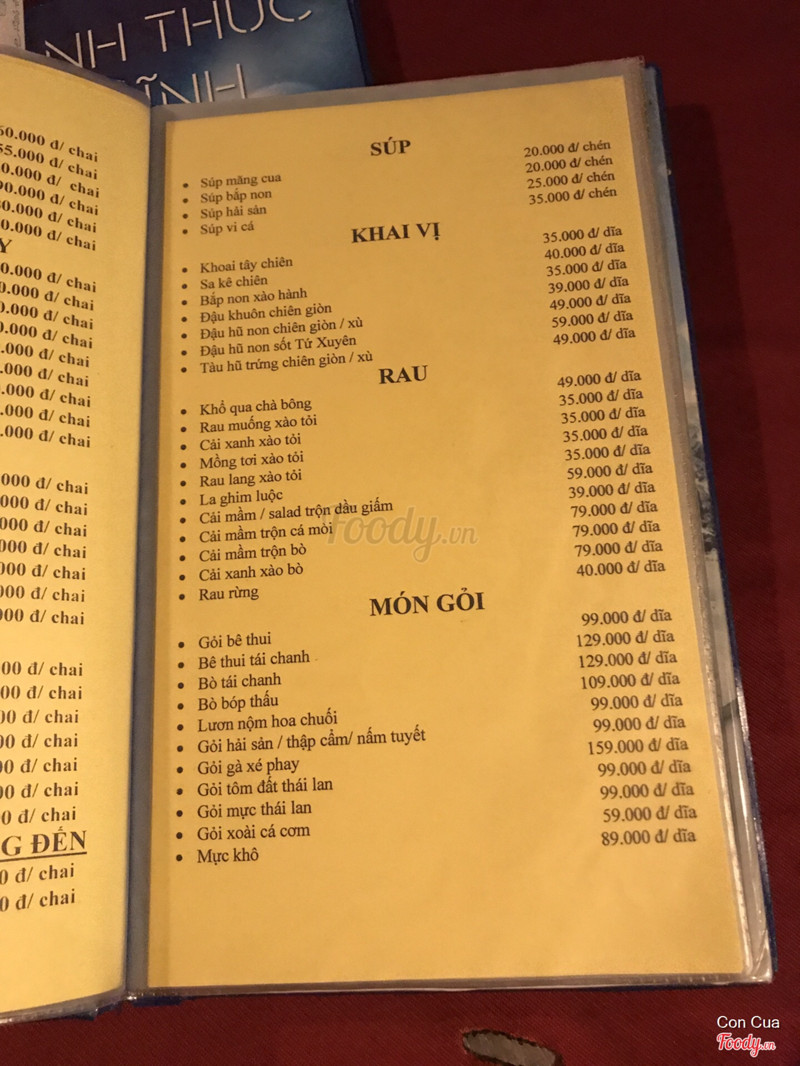 NH THỨC
ĨNH
0.000 đ/ chai
5.000 đ/ chai
0.000 đ/ chai
0.000 đ/ chai
0.000 đ/ chai
0.000 đ/ chai
Y
0.000 đ/ chai
0.000 đ/ chai
0.000 đ/ chai
0.000 đ/ chai
.000 đ/ chai
.000 đ/ chai
.000 đ/ chai
.000 đ/ chai
.000 đ/ chai
000 đ/ chai
000 đ/ chai
000 đ/ chai
000 đ/ chai
000 đ/ chai
000 đ/ chai
000 đ/ chai
00 đ/ chai
00 đ/ chai
00 đ/ chai
00 đ/ chai
00 đ/ chai
0 đ/ chai
0 đ/ chai
G ĐẾN
0 đ/ chai
0 đ/ chai
SÚP
• Súp măng cua 20.000 đ/ chén
• Súp bắp non 20.000 đ/ chén
• Súp hải sản 25.000 đ/ chén
• Súp vi cá 35.000 đ/ chén
KHAI VỊ
• Khoai tây chiên 35.000 đ/ dĩa
• Sa kê chiên 40.000 đ/ dĩa
• Bắp non xào hành 35.000 đ/ dĩa
• Đậu khuôn chiên giòn 39.000 đ/ dĩa
• Đậu hũ non chiên giòn / xù 49.000 đ/ dĩa
• Đậu hũ non sốt Tứ Xuyên 59.000 đ/ dĩa
• Tàu hũ trứng chiên giòn / xù 49.000 đ/ dĩa
RAU
• Khổ qua chà bông 49.000 đ/ dĩa
• Rau muống xào tỏi 35.000 đ/ dĩa
• Cải xanh xào tỏi 35.000 đ/ dĩa
• Mồng tơi xào tỏi 35.000 đ/ dĩa
• Rau lang xào tỏi 35.000 đ/ dĩa
• La ghim luộc 59.000 đ/ dĩa
• Cải mầm / salad trộn dầu giấm 39.000 đ/ dĩa
• Cải mầm trộn cá mòi 79.000 đ/ dĩa
• Cải mầm trộn bò 79.000 đ/ dĩa
• Cải xanh xào bò 79.000 đ/ dĩa
• Rau rừng 40.000 đ/ dĩa
MÓN GỎI
• Gỏi bê thui 99.000 đ/ dĩa
• Bê thui tái chanh 129.000 đ/ dĩa
• Bò tái chanh 129.000 đ/ dĩa
• Bò bóp thấu 109.000 đ/ dĩa
• Lươn nộm hoa chuối 99.000 đ/ dĩa
• Gỏi hải sản / thập cẩm/ nấm tuyết 99.000 đ/ dĩa
• Gỏi gà xé phay 159.000 đ/ dĩa
• Gỏi tôm đất thái lan 99.000 đ/ dĩa
• Gỏi mực thái lan 99.000 đ/ dĩa
• Gỏi xoài cá cơm 59.000 đ/ dĩa
• Mực khô 89.000 đ/ dĩa
foody.vn
Con Cua
Foody.vn